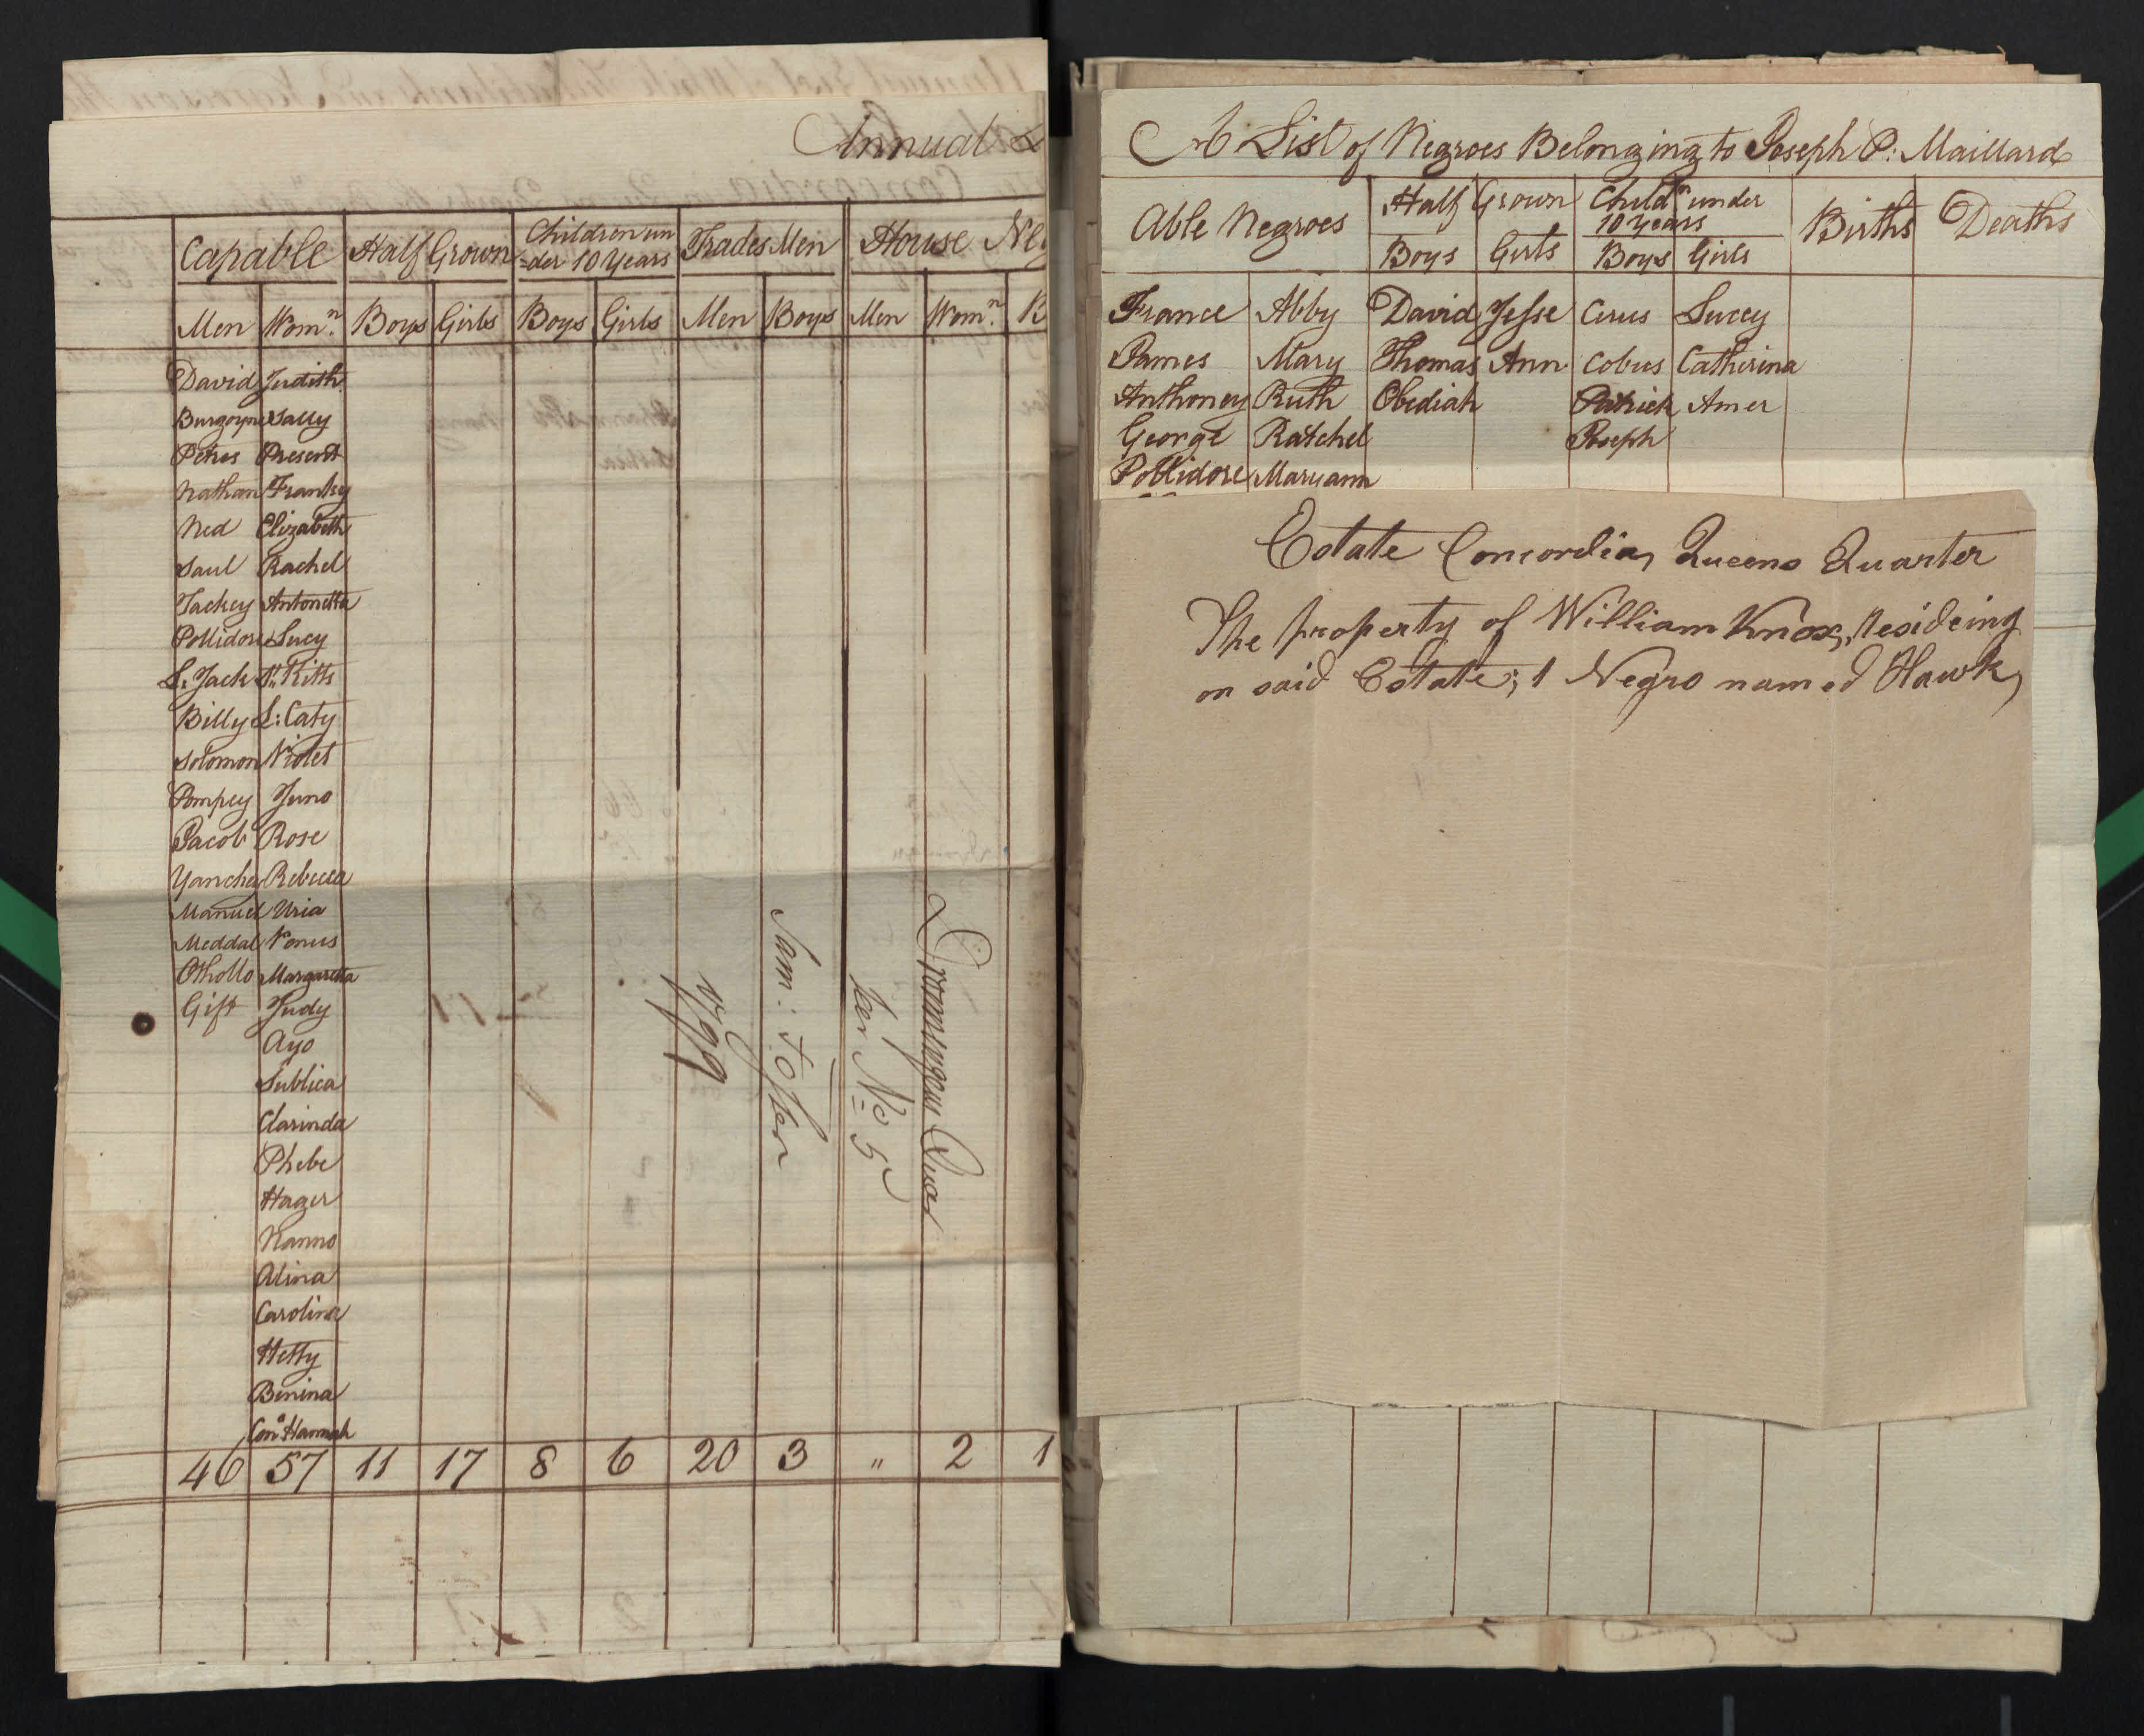 Annual
Capable Half Grown Children un Trades Men House Neg
-der 10 Years
Men Womn. Boys Girls Boys Girls Men Boys Men Womn. B
David Judith
Burgoyne Sally
Petrus Present
Nathan Franky
Ned Elizabeth
Saul Rachel
Jackey Antonetta
Pollidore Lucy
L: Jack St. Kitts
Billy L: Caty
Solomon Violet
Pompey Juno
Jacob Rose
Yanchey Rebecca
Manuel Uria
Meddal Venus
Othollo Margaretta
Gift Judy
Ayo
Sublica
Clarinda
Phebe
Hager
Nanno
Alina
Carolina
Hetty
Benina
Con: Hannah
46 57 11 17 8 6 20 3 " 2 1
Quar
ter No 5
Sam:
1799
A List of Negroes Belonging to Joseph P: Maillard
Able Negroes Half Grown Childn under Births Deaths
10 years
Boys Girls Boys Girls
France Abby David Jesse Cirus Luccy
James Mary Thomas Ann Cobus Catherina
Anthoney Ruth Obediah Patrick Amer
George Ratchel Joseph
Pollidore Maryann
Estate Concordia, Queens Quarter
The property of William Knox, resideing
on said Estate; 1 Negro named Hawk,